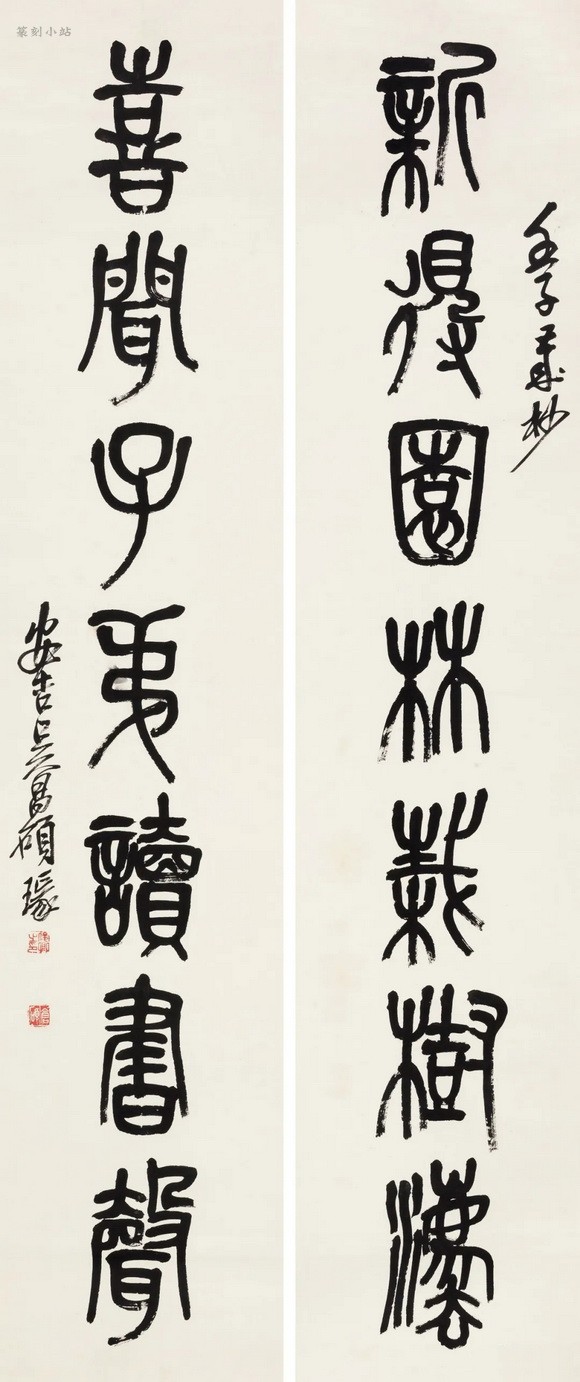 篆刻小站
壬子歲杪
新得園林栽樹灋
喜聞子弟讀書聲
安吉吳昌碩瑑